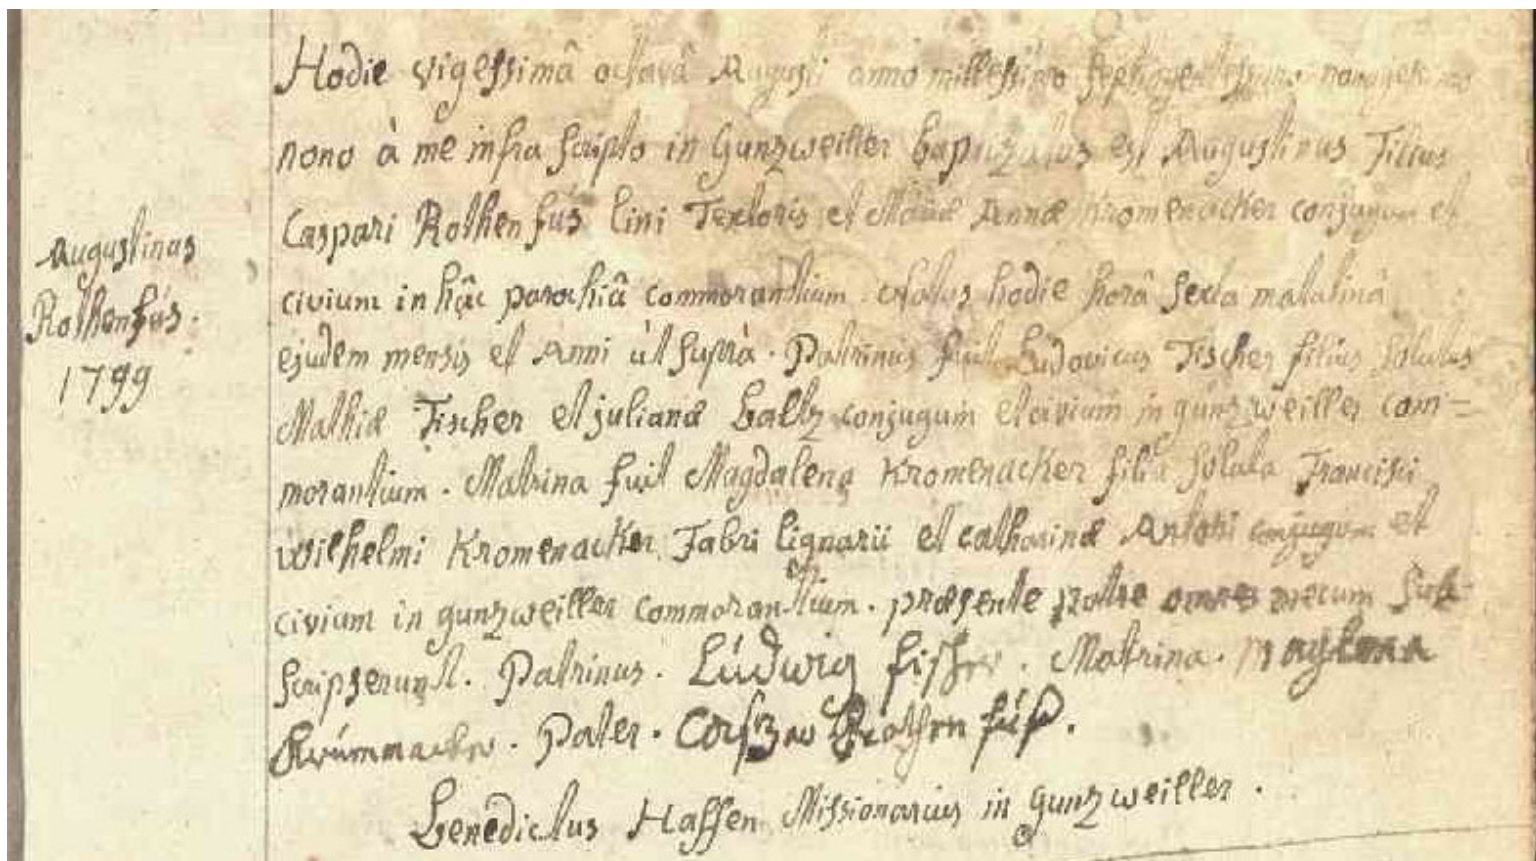 Augustinus
Rothenfús.
1799
Hodie vigessimâ octavâ Augusti anno millessimo septingentessimo nonagesimo
nono à me infra scripto in Gunzweiller baptizatus est Augustinus Filius
Caspari Rothenfús lini Textoris et Mariæ Annæ Kromenacker conjugum et
civium in hâc parochiâ commorantium. Natus hodie horâ sexta matutinâ
ejusdem mensis et Anni ùt suprà. Patrinus fuit Ludovicus Fischer filius solutus
Mathiæ Fischer et julianæ Baltz conjugum et civium in gunzweiller com=
morantium. Matrina fuit Magdalena Kromenacker filia soluta Francisci
Wilhelmi Kromenacker Fabri lignarii et catharinæ Antoni conjugum et
civium in gunzweiller commorantium. et præsente patre omnes mecum sub=
scripserunt. Patrinus. Lúdwig fischer. Matrina. maglena
Krúmmacker. Pater. Rothenfúß.
Benedictus Haffen Missionarius in Gunzweiller.